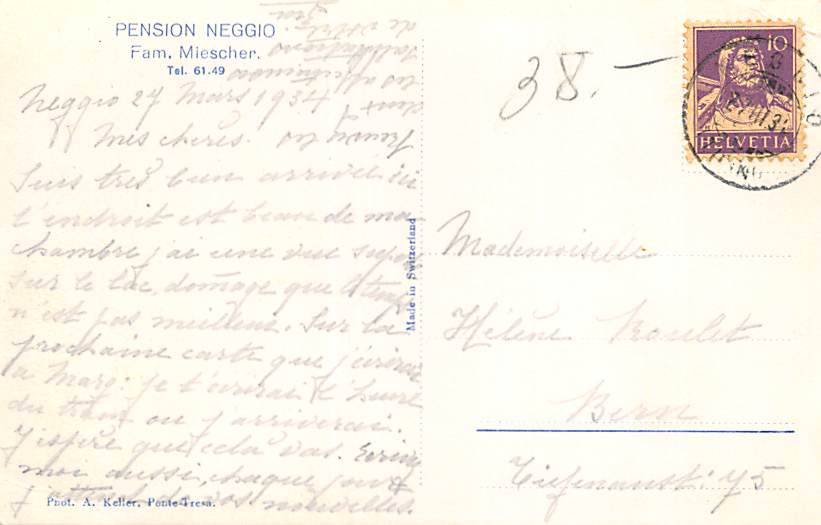 PENSION NEGGIO
Fam. Miescher.
Tel. 61.49
Neggio 27 Mars 1934
Mes chères.
Suis très bien arrivée ici
l'endroit est beau de ma
chambre j'ai une vue
sur le lac, domage que le temps
n'est pas meilleur. Sur la
prochaine carte que j'écrirai
a Marg: je t'écrirai l'heure
du train ou j'arriverai.
J'espère que cela vas. Ecrire
moi aussi, chaque jour
j'attens vos nouvelles.
Phot. A. Keller, Ponte-Tresa.
Made in Switzerland
38.—
10
HELVETIA
Mademoiselle
Hélène Roulet
Bern
Tiefenaustr: 75